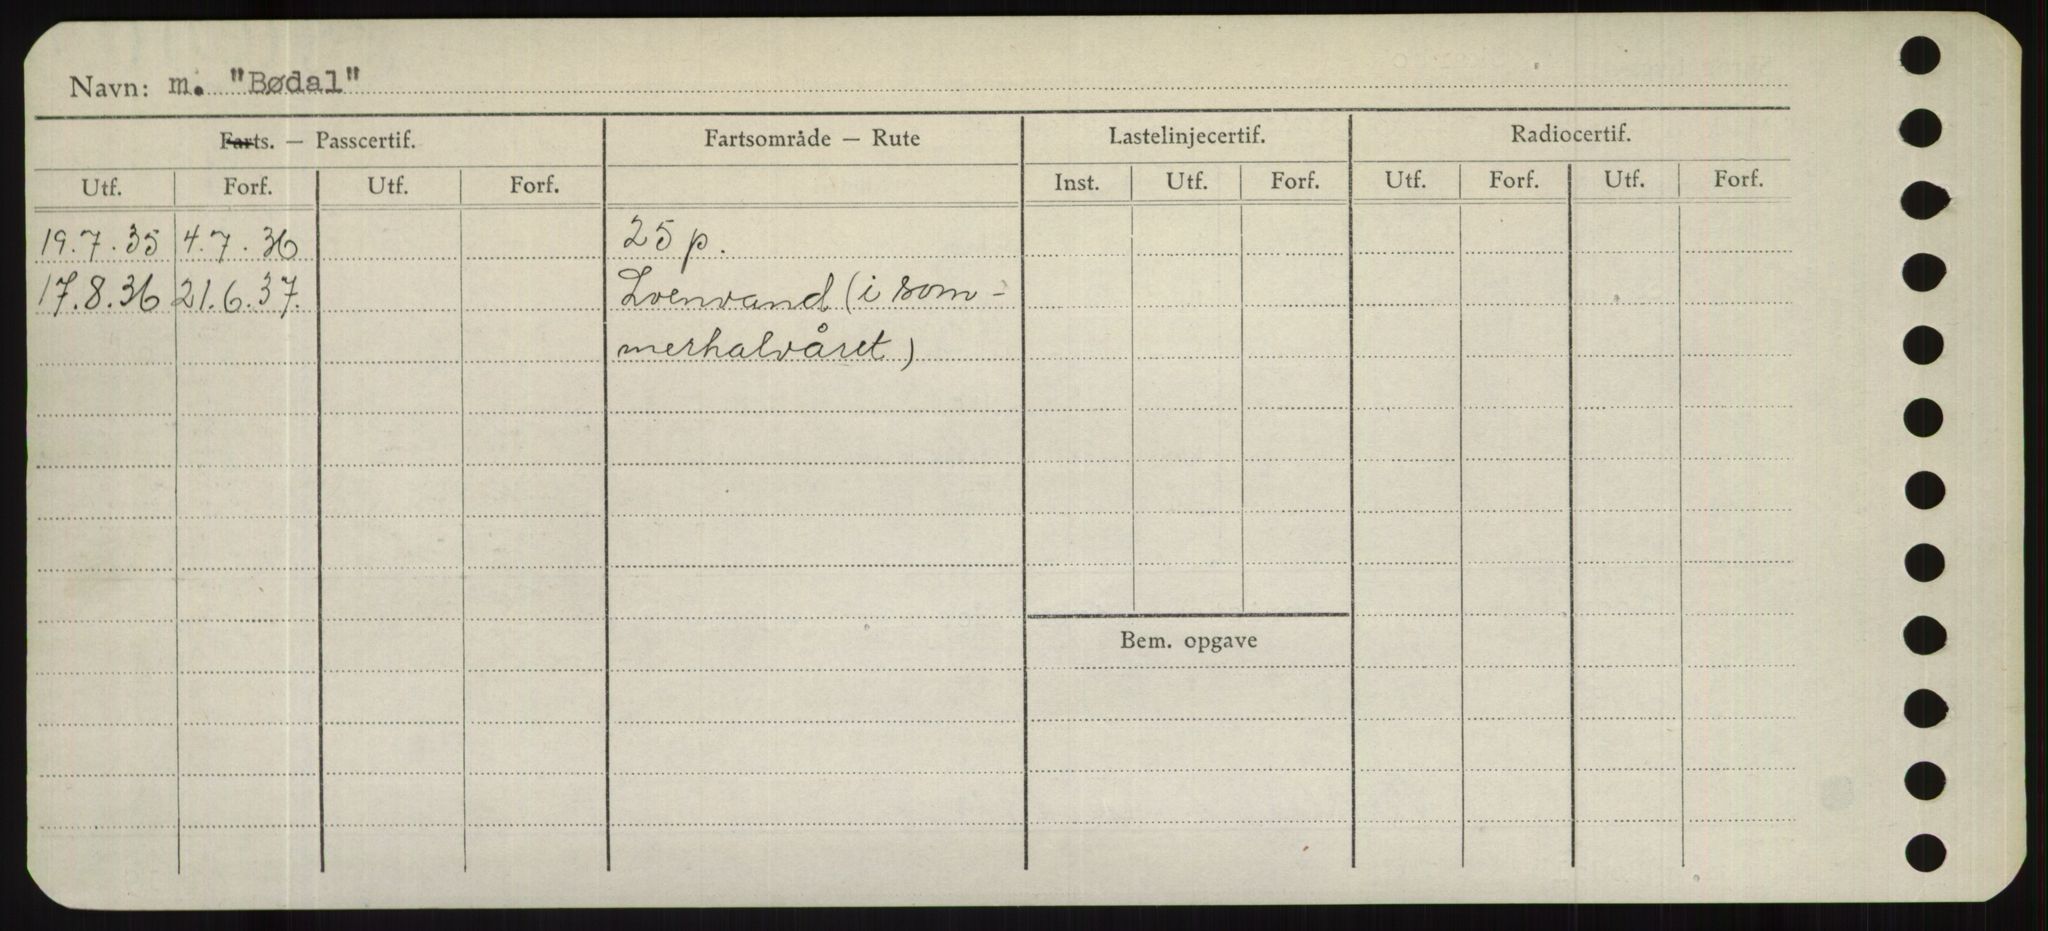 Navn: m. "Bødal"
Farts. — Passcertif. Fartsområde — Rute Lastelinjecertif. Radiocertif.
Utf. Forf. Utf. Forf. Inst. Utf. Forf. Utf. Forf. Utf. Forf.
19.7.35 4.7.36 25 p.
17.8.36 21.6.37. Loenvand (i som-
merhalvåret)
Bem. opgave